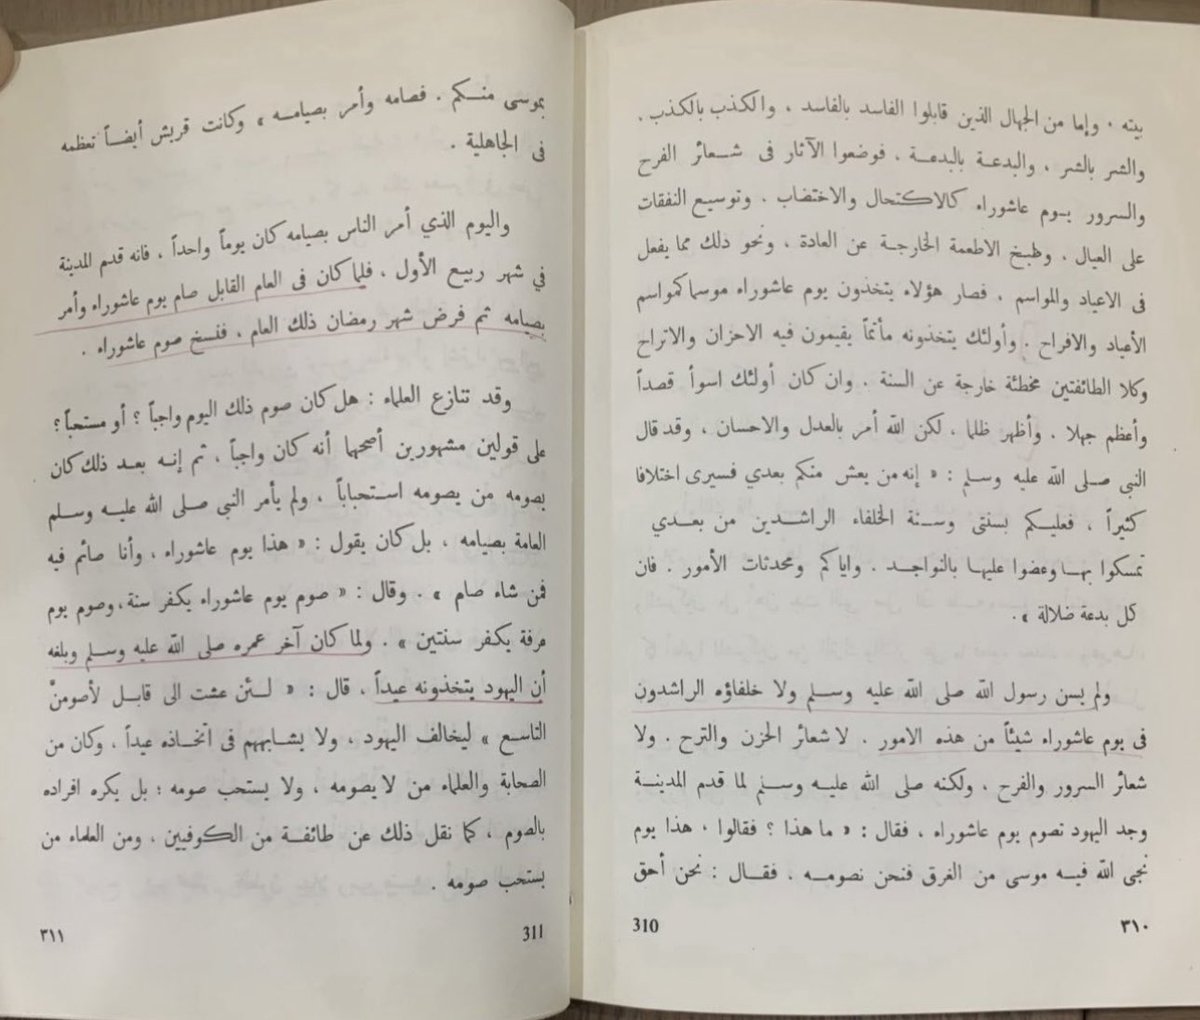 بيته . وإما من الجهال الذين قابلوا الفاسد بالفاسد ، والكذب بالكذب ،
والشر بالشر ، والبدعة بالبدعة ، فوضعوا الآثار فى شعائر الفرح
والسرور يوم عاشوراء كالاكتحال والاختضاب ، وتوسيع النفقات
على العيال ، وطبخ الاطعمة الخارجة عن العادة ، ونحو ذلك مما يفعل
فى الاعياد والمواسم ، فصار هؤلاء يتخذون يوم عاشوراء موسما كمواسم
الأعياد والافراح . وأولئك يتخذونه مأتماً يقيمون فيه الاحزان والاتراح
وكلا الطائفتين مخطئة خارجة عن السنة ، وان كان أولئك اسوأ قصداً
وأعظم جهلا ، وأظهر ظلما ، لكن الله أمر بالعدل والاحسان ، وقد قال
النبي صلى الله عليه وسلم : « إنه من يعش منكم بعدي فسيرى اختلافا
كثيراً ، فعليكم بسنتى وسنة الخلفاء الراشدين من بعدي
تمسكوا بها وعضوا عليها بالنواجد ، واياكم ومحدثات الأمور . فان
كل بدعة ضلالة » .
ولم يسن رسول الله صلى الله عليه وسلم ولا خلفاؤه الراشدون
فى يوم عاشوراء شيئاً من هذه الامور . لا شعائر الحزن والترح ، ولا
شعائر السرور والفرح ، ولكنه صلى الله عليه وسلم لما قدم المدينة
وجد اليهود تصوم يوم عاشوراء ، فقال : « ما هذا ؟ فقالوا . هذا يوم
نجى الله فيه موسى من الغرق فنحن نصومه ، فقال : نحن أحق
310 ٣١٠
بموسى منكم . فصامه وأمر بصيامه » وكانت قريش أيضاً تعظمه
فى الجاهلية .
واليوم الذي أمر الناس بصيامه كان يوماً واحداً ، فانه قدم المدينة
في شهر ربيع الأول ، فلما كان فى العام القابل صام يوم عاشوراء وأمر
بصيامه ثم فرض شهر رمضان ذلك العام ، فنسخ صوم عاشوراء .
وقد تنازع العلماء : هل كان صوم ذلك اليوم واجباً ؟ أو مستحباً ؟
على قولين مشهورين أصحهما أنه كان واجباً ، ثم إنه بعد ذلك كان
يصومه من يصومه استحباباً ، ولم يأمر النبي صلى الله عليه وسلم
العامة بصيامه ، بل كان يقول : « هذا يوم عاشوراء ، وأنا صائم فيه
فمن شاء صام » . وقال : « صوم يوم عاشوراء يكفر سنة ، وصوم يوم
عرفة يكفر سنتين » . ولما كان آخر عمره صلى الله عليه وسلم وبلغه
أن اليهود يتخذونه عيداً ، قال : « لئن عشت الى قابل لأصومنْ
التاسع » ليخالف اليهود ، ولا يشابههم فى اتخاذه عيداً ، وكان من
الصحابة والعلماء من لا يصومه ، ولا يستحب صومه ؛ بل يكره افراده
بالصوم ، كما نقل ذلك عن طائفة من الكوفيين ، ومن العلماء من
يستحب صومه .
311 ٣١١